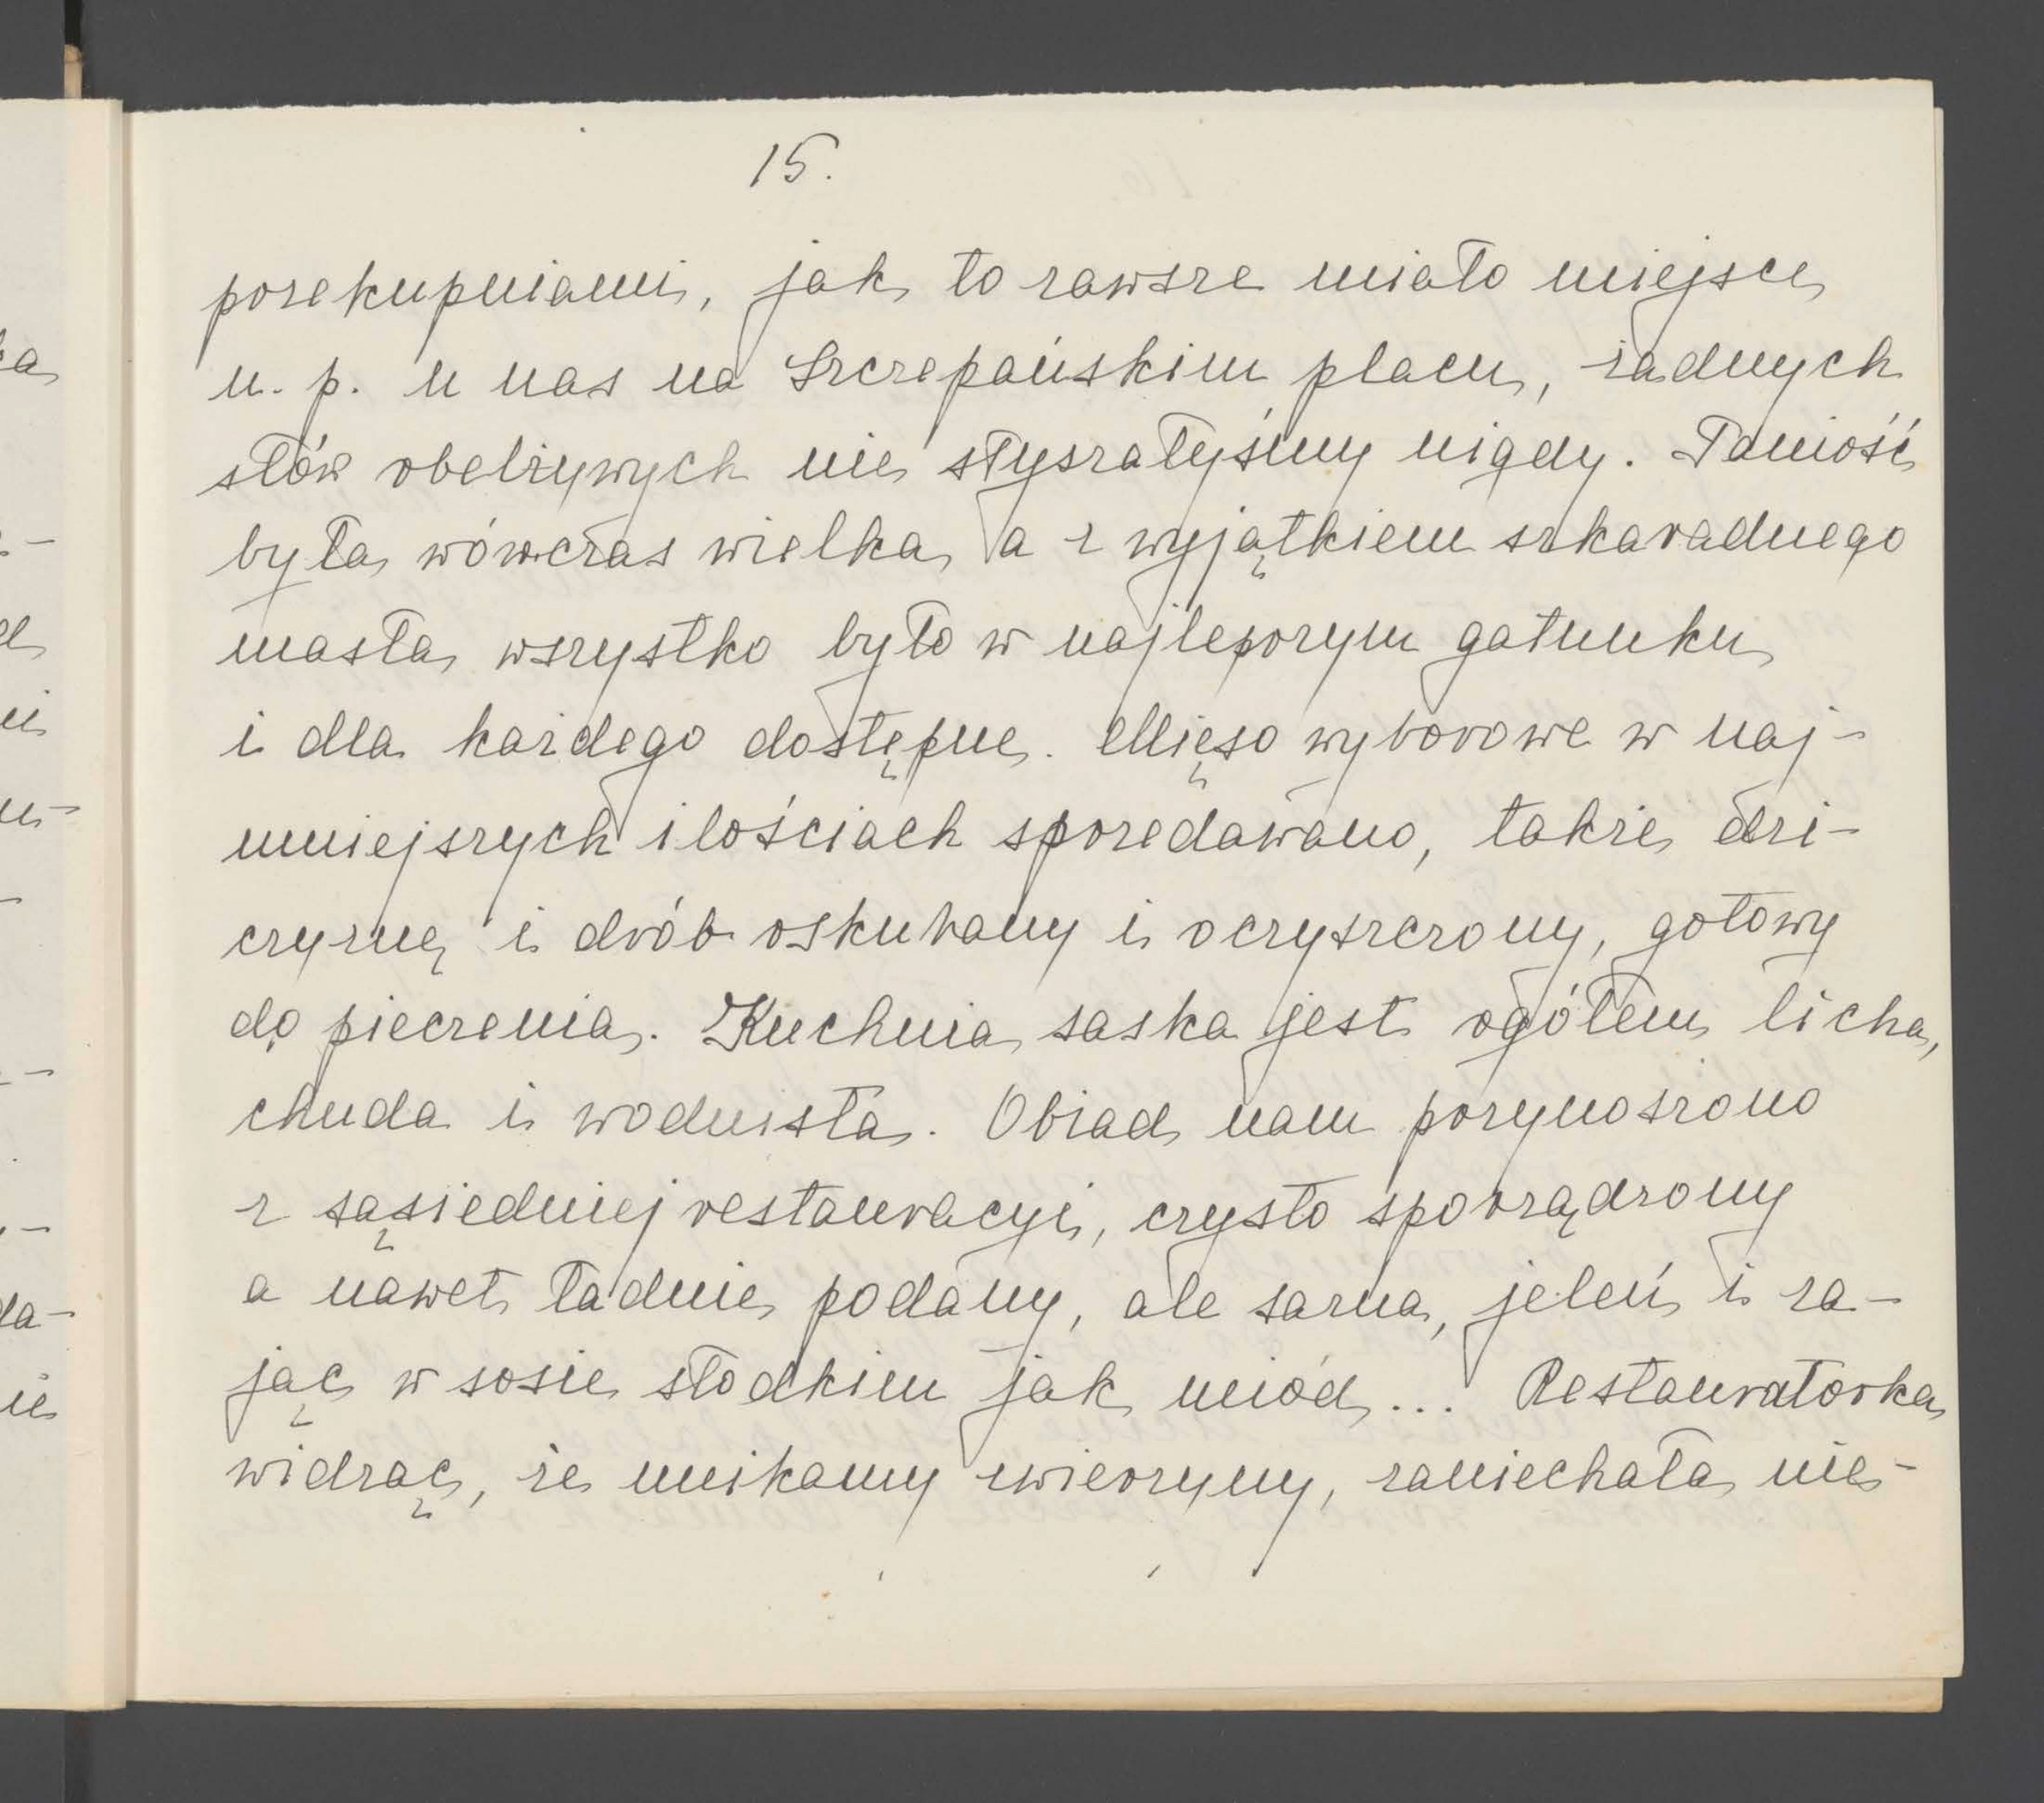 15.
przekupniami, jak to zawsze miało miejsce
n. p. u nas na Szczepańskim placu, żadnych
słów obelżywych nie słyszałyśmy nigdy. Taniość
była wówczas wielka, a z wyjątkiem szkaradnego
masła, wszystko było w najlepszym gatunku
i dla każdego dostępne. Mięso wyborowe w naj-
mniejszych ilościach sprzedawano, także dzi-
czyznę i drób oskubany i oczyszczony, gotowy
do pieczenia. Kuchnia saska jest ogółem licha,
chuda i wodnista. Obiad nam przynoszono
z sąsiedniej restauracyi, czysto sporządzony
a nawet ładnie podany, ale sarna, jeleń i za-
jąc w sosie słodkim jak miód... Restauratorka
widząc, że unikamy zwierzyny, zaniechała nie-